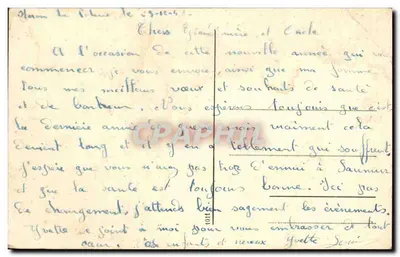 le 29-12-4
Chers Grand'mère et Oncle
A l'occasion de cette nouvelle année, qui va
commencer je vous envoie, ainsi que ma femme
tous mes meilleurs vœux et souhaits de santé
et de bonheur. Nous espérons toujours que c'est
la dernière année que car vraiment cela
devient long et il y en a tellement qui souffrent
J'espère que vous n'avez pas trop d'ennui à Saumur
et que la santé est toujours bonne. Ici pas
de changement, j'attends bien sagement les évènements.
Yvette se joint à moi pour vous embrasser et tout
cœur. Vos enfants et neveux Yvette